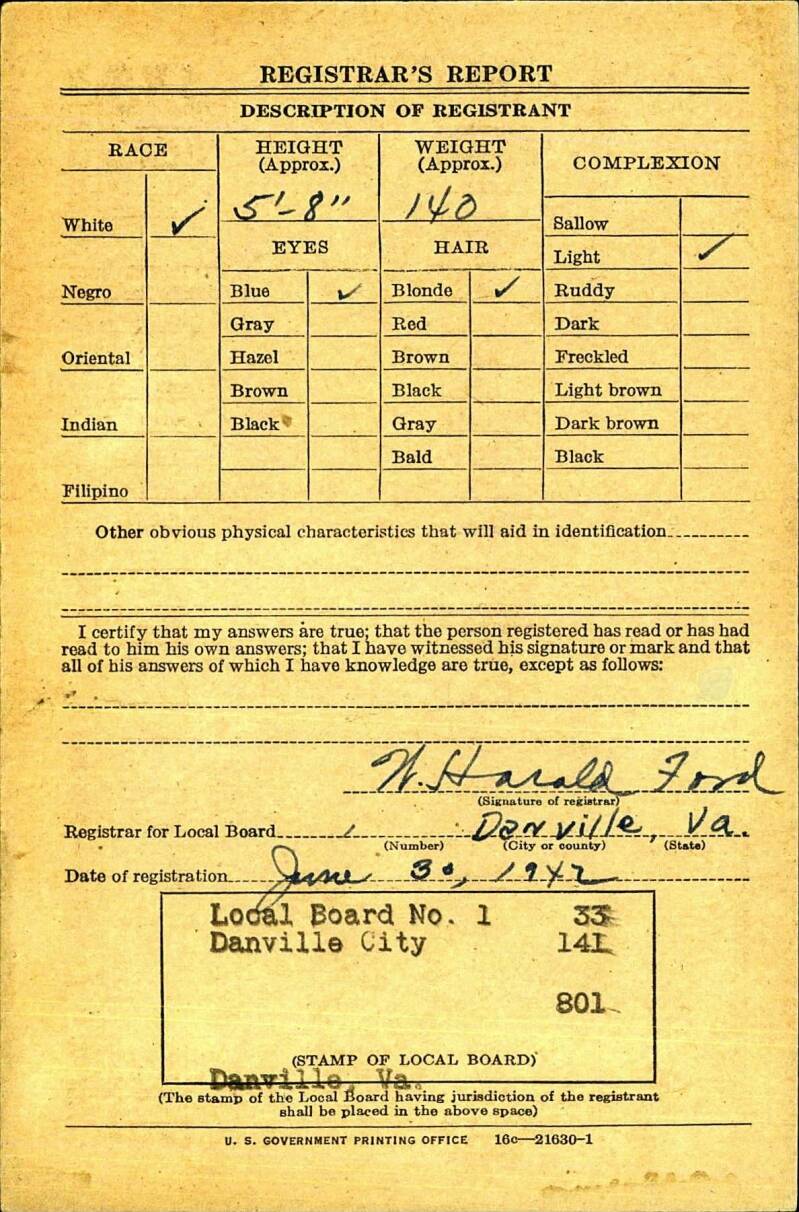 REGISTRAR'S REPORT
DESCRIPTION OF REGISTRANT
RACE HEIGHT (Approx.) WEIGHT (Approx.) COMPLEXION
White ✓ 5'-8" 140 Sallow
EYES HAIR Light ✓
Negro Blue ✓ Blonde ✓ Ruddy
Gray Red Dark
Oriental Hazel Brown Freckled
Brown Black Light brown
Indian Black Gray Dark brown
Bald Black
Filipino
Other obvious physical characteristics that will aid in identification
I certify that my answers are true; that the person registered has read or has had
read to him his own answers; that I have witnessed his signature or mark and that
all of his answers of which I have knowledge are true, except as follows:
W. Harald Ford
(Signature of registrar)
Registrar for Local Board 1 Danville, Va.
(Number) (City or county) (State)
Date of registration June 30, 1942
Local Board No. 1 33
Danville City 141
801
(STAMP OF LOCAL BOARD)
Danville, Va.
(The stamp of the Local Board having jurisdiction of the registrant
shall be placed in the above space)
U. S. GOVERNMENT PRINTING OFFICE 16c—21630-1